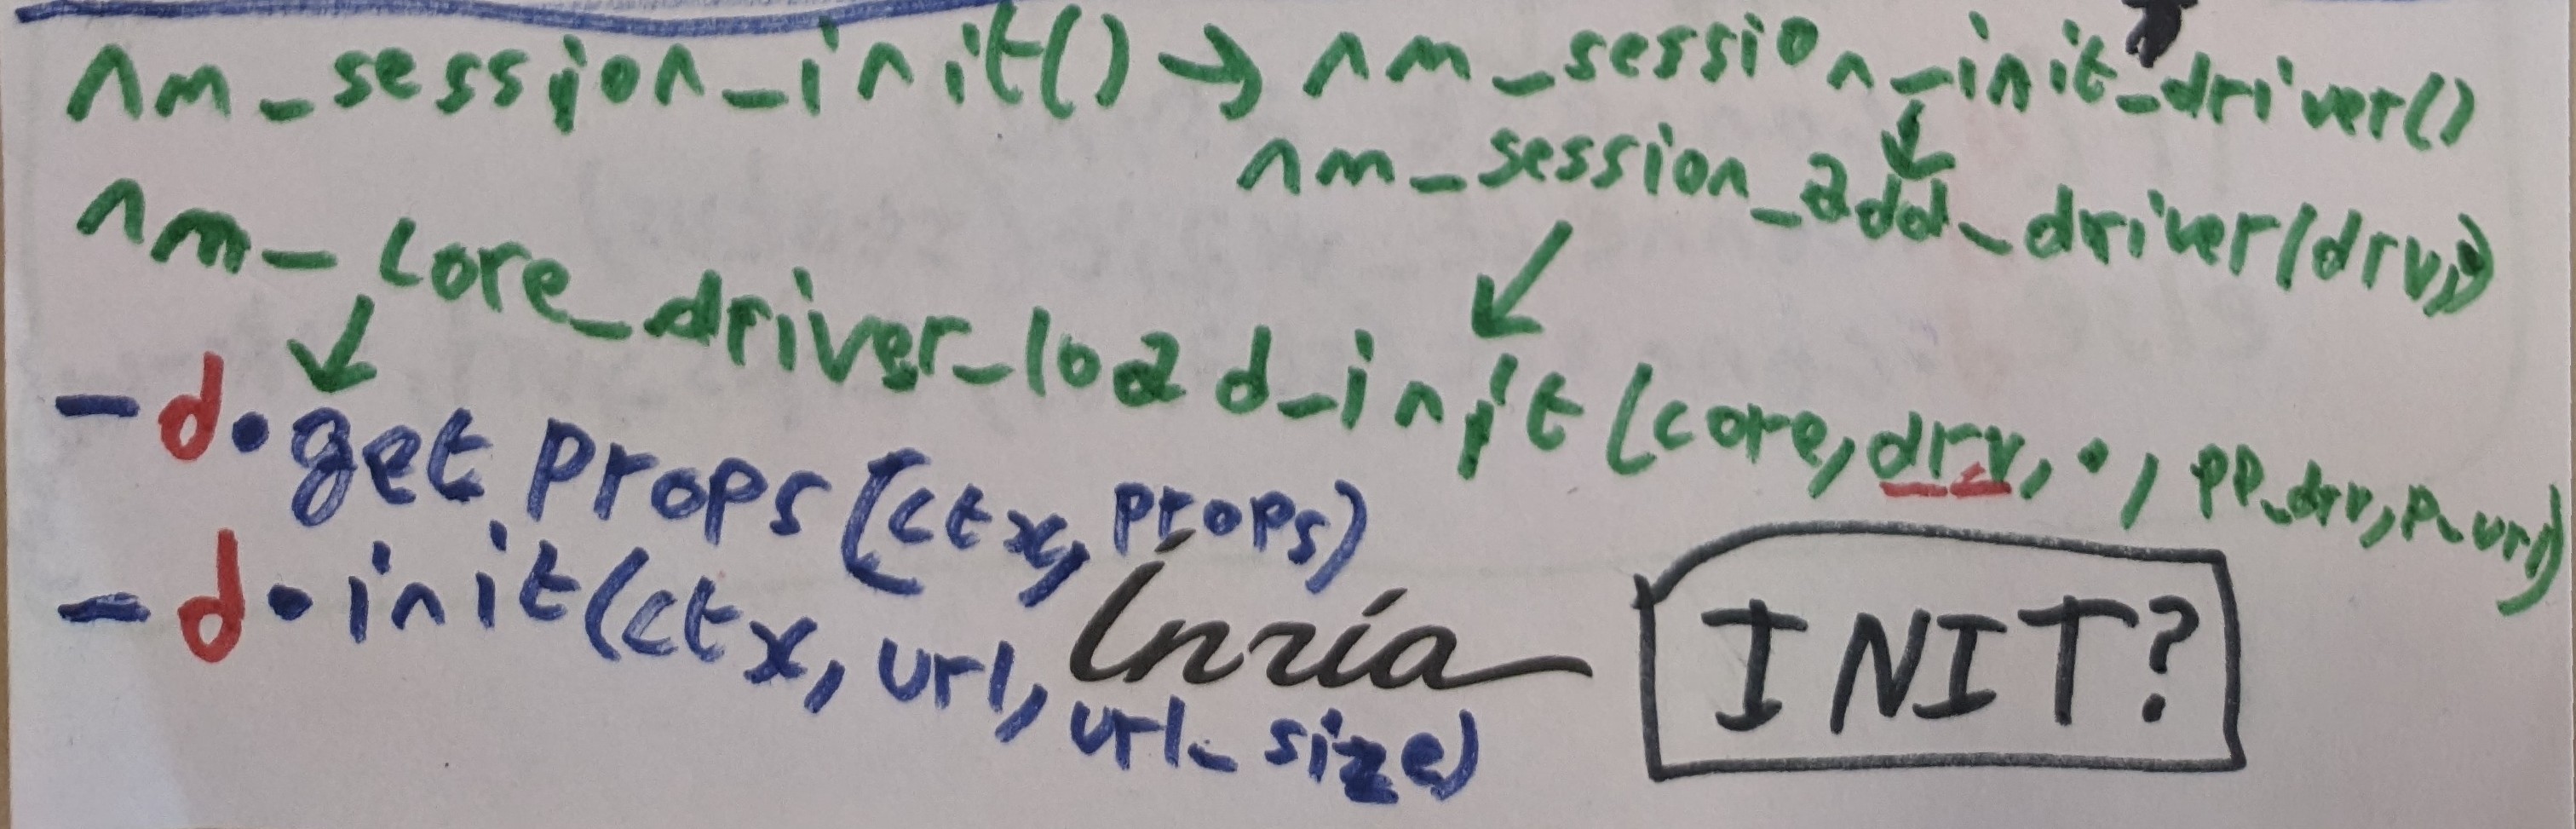 nm_session_init() → nm_session_init_driver()
↓
nm_session_add_driver(drv,)
↙
nm_core_driver_load_init(core, drv, •, pp_drv, p_url)
↓
- d.get props (ctx, props)
- d.init(ctx, url, url_size)
Inria
INIT?